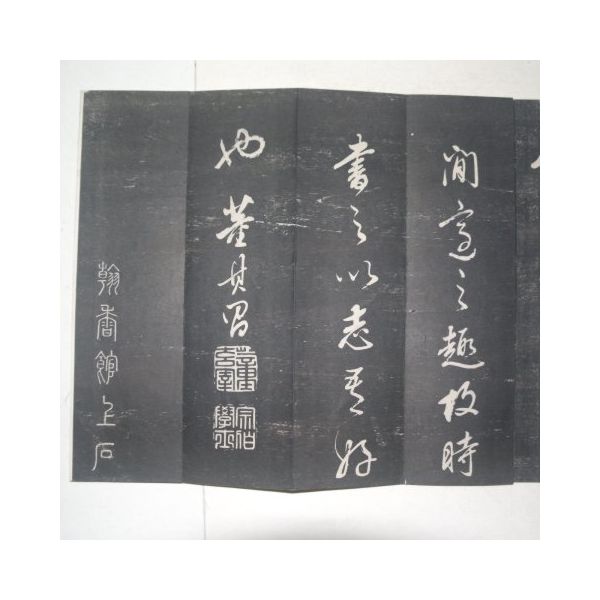 閒適之趣故時
書之以志吾好
也董其昌
宗伯學士
翰香館上石